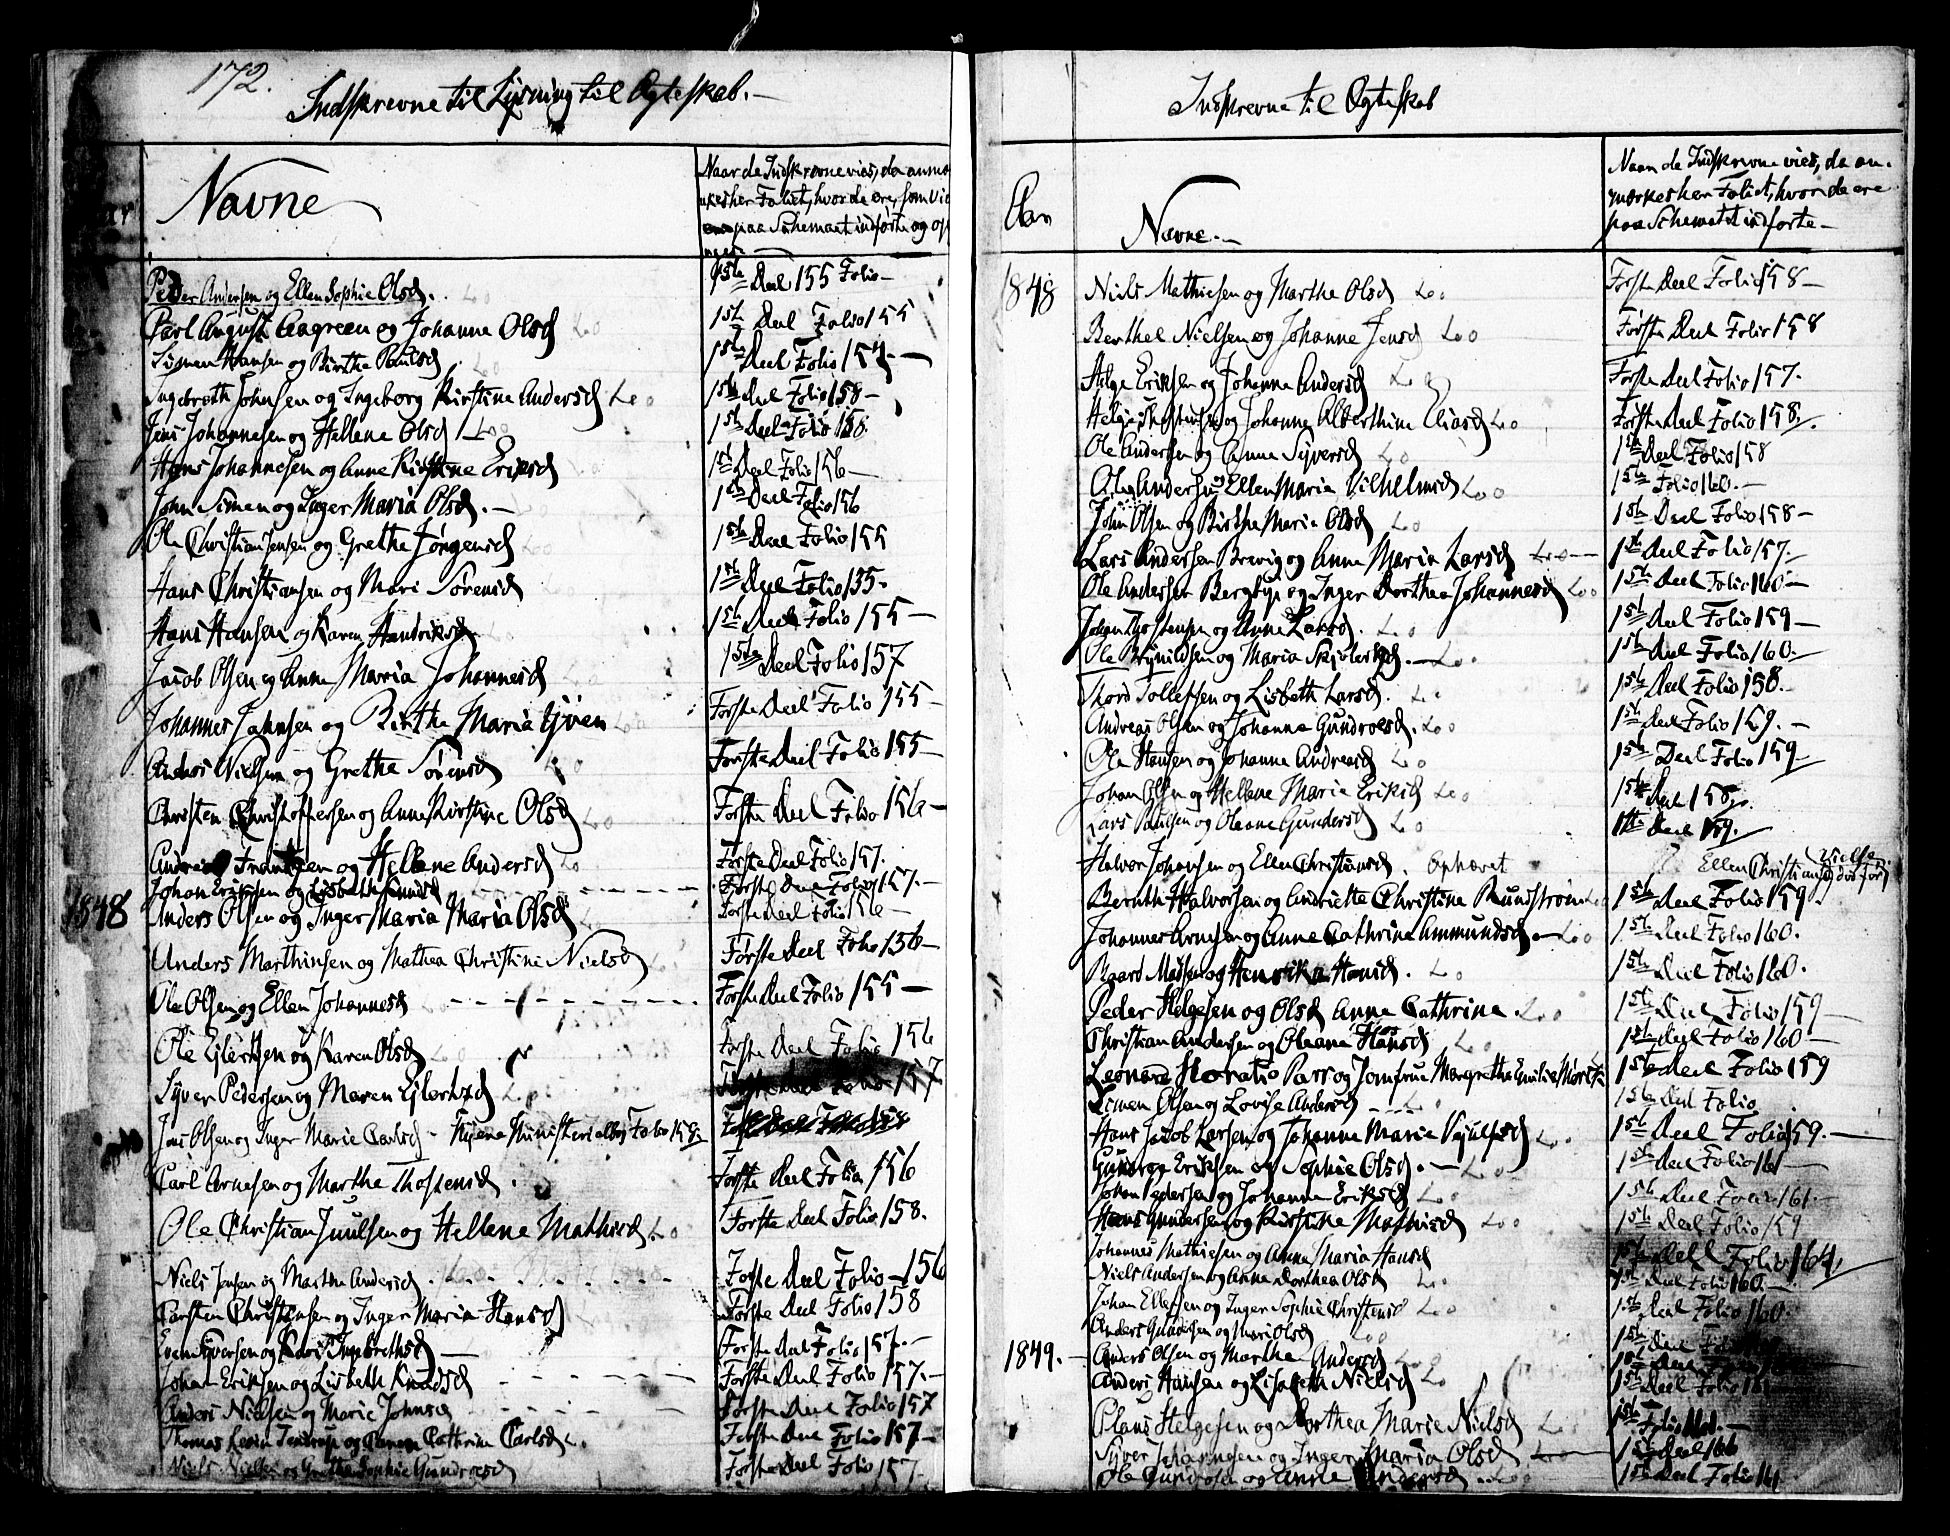 172.
Indskrevne til Lysning til Ægteskab.—
Navne
Naar de Indskrevne vies, da anmær
kes her Foliet, hvor de ere, som Vi
paa Schemaet indførte og
Peder Andersen og Ellen Sophie Olsd.
1ste Deel 155 Folio—
Carl August Aagreen og Johanne Olsd
1ste Deel Folio 155
Simen Hansen og Birthe Paulsd
1ste Deel Folio 157.—
Ingebreth Johnsen og Ingeborg Kirstine Andersd
1ste Deel Folio 158—
Jens Johannesen og Hellene Olsd
1ste Deel Folio 158
Hans Johannesen og Anne Kirstine Eriksd
1ste Deel Folio 156—
John Simen og Inger Maria Olsd.—
1ste Deel Folio 156
Ole Christian Jensen og Grethe Jørgensd
1ste Deel Folio 155
Hans Christiansen og Mari Sørensd
1ste Deel Folio 155.
Hans Hansen og Karen Hendriksd
1ste Deel Folio 155—
Jacob Olsen og Anne Maria Johannesd
1ste Deel Folio 157
Johannes Jahnsen og Birthe Maria
Første Deel Folio 155—
Anders Nielsen og Grethe Sørensd
Første Deel Folio 155—
Christen Christoffersen og Anne Kirstine Olsd
Første Deel Folio 156—
Andreas og Hellene Andersd
Første Deel Folio 157.
Johan Eriksen og Lisbeth Knudsd
Første Deel Folio 157.—
1848
Anders Olsen og Inger Maria Maria Olsd
Første Deel Folio 156—
Anders Marthinsen og Mathea Christine Nielsd
Første Deel Folio 156—
Ole Olsen og Ellen Johannesd
Første Deel Folio 155—
Ole Ejlertsen og Karen Olsd
Første Deel Folio 156
Syver Pedersen og Maren Ejlertsd
Første Deel Folio 157
Jens Olsen og Inger Marie Carlsd — Ministerialbog Folio 158
Carl Arnesen og Marthe Thostensd.
Første Deel Folio 156
Ole Christian Juulsen og Hellene Mathisd.
Første Deel Folio 158.
Niels Jensen og Marthe Andersd.
Første Deel Folio—156
Carsten Christensen og Inger Maria Hansd
Første Deel Folio 158
Even Syversen og Kari Ingebrethsd—
Første Deel Folio 157.—
Johan Eriksen og Lisbeth Knudsd
Første Deel Folio 157.—
Anders Nielsen og Marie Johnsd
Første Deel Folio 157
Thomas og Karen Cathrine Carlsd
Første Deel Folio 157—
Niels Nielsen og Grethe Sophie Gundroesd
Første Deel Folio 157
Indskrevne til Ægteskab
Aar
Navne.—
Naar de Indskrevne vies, da an-
mærkes her Foliet, hvor de ere
paa Schemaet indførte—
1848
Niels Mathiesen og Marthe Olsd
Første Deel Folio 158—
Berthel Nielsen og Johanne Jensd
Første Deel Folio 158
Helge Eriksen og Johanne Andersd
Første Deel Folio 157.
og Johanne Alberthine Eliasd
Første Deel Folio 158.
Ole Andersen og Anne Syversd
1ste Deel Folio 158
Ole Andersen og Ellen Maria Vilhelmsd
1ste Folio 160.—
John Olsen og Birthe Marie Olsd
1ste Deel Folio 158—
Lars Andersen Brevig og Anne Maria Larsd
1ste Deel Folio 157.
Ole Andersen Bergbye og Inger Dorthea Johannesd
1ste Deel Folio 160—
Johan Thostensen og Anne Larsd.
1ste Deel Folio 159—
Ole Brynildsen og Maria
1ste Deel Folio 160.
Tollefsen og Lisbeth Larsd.
1ste Deel Folio 158.—
Andreas Olsen og Johanne Gundroesd.
1ste Deel Folio 159.—
Ole Hansen og Johanne Andreasd
1ste Deel Folio 159—
Johan Olsen og Hellene Marie Eriksd
1ste Deel 158.
Lars Paulsen og Oleane Gundersd
1ste Deel 159.
Halvor Johansen og Ellen Christiansd. Ophævet
Ellen Christiansd død før Vielsen.
Bernth Halvorsen og Andriette Christine Rundstrøm
1ste Deel Folio 159
Johannes Arnesen og Anne Cathrine Ammundsd.—
1ste Deel Folio 160.
Baard Madsen og Henrike Hansd.
1ste Deel Folio 160.
Peder Helgesen og Olsd Anne Cathrine.
1ste Deel Folio 159—
Christian Andersen og Oleane Hansd
1ste Deel Folio 160—
Leonard Horatio Parr og Jomfrue Margrethe Emilie
1ste Deel Folio 159
Simen Olsen og Lovise Andersd
1ste Deel Folio
Hans Jacob Larsen og Johanne Marie
1ste Deel Folio 159.—
Gundroe Eriksen og Sophie Olsd.—
1ste Deel Folio 161—
Johan Pedersen og Johanne Eriksd
1ste Deel Folio 161.—
Hans Gundersen og Kirstine Mathisd
1ste Deel Folio 159
Johannes Mathiesen og Anne Maria Hansd
1ste Deel Folio 164
Niels Andersen og Anne Dorthea Olsd
1ste Deel Folio 160.—
Johan Ellefsen og Inger Sophie Christensd
1ste Deel Folio 160.
Anders Gundersen og Mari Olsd
1ste Deel Folio
1849.—
Anders Olsen og Marthe Andersd
Anders Hansen og Lisabeth Nielsd
1ste Deel Folio
Claus Helgesen og Dorthea Marie Nielsd
1ste Folio
Syver Johannesen og Inger Maria Olsd
1ste Deel 166
Ole Gundrosen og Anne Andersd.
1ste Deel Folio 161